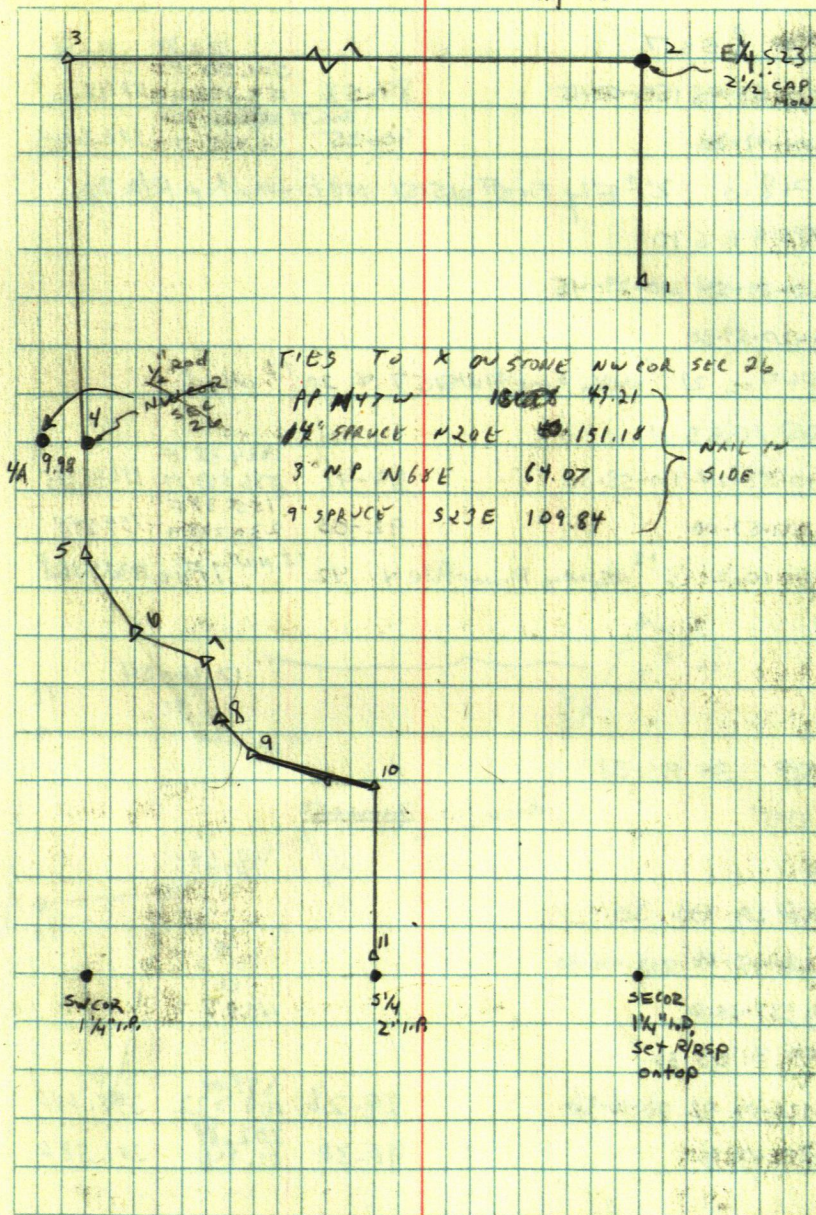 3
2
E 1/4 S23
2 1/2" CAP
MON
1
1/2" Rod
NW COR
SEC
26
4
4A 9.98
TIES TO X ON STONE NW COR SEC 26
PP N47W 43.21
14" SPRUCE N20E 151.18
3" NP N68E 64.07
9" SPRUCE S23E 109.84
NAIL IN
SIDE
5
6
7
8
9
10
11
SW COR
1 1/4" I.P.
S 1/4
2" I.P.
SE COR
1 1/4" I.P.
set R/RSP
on top